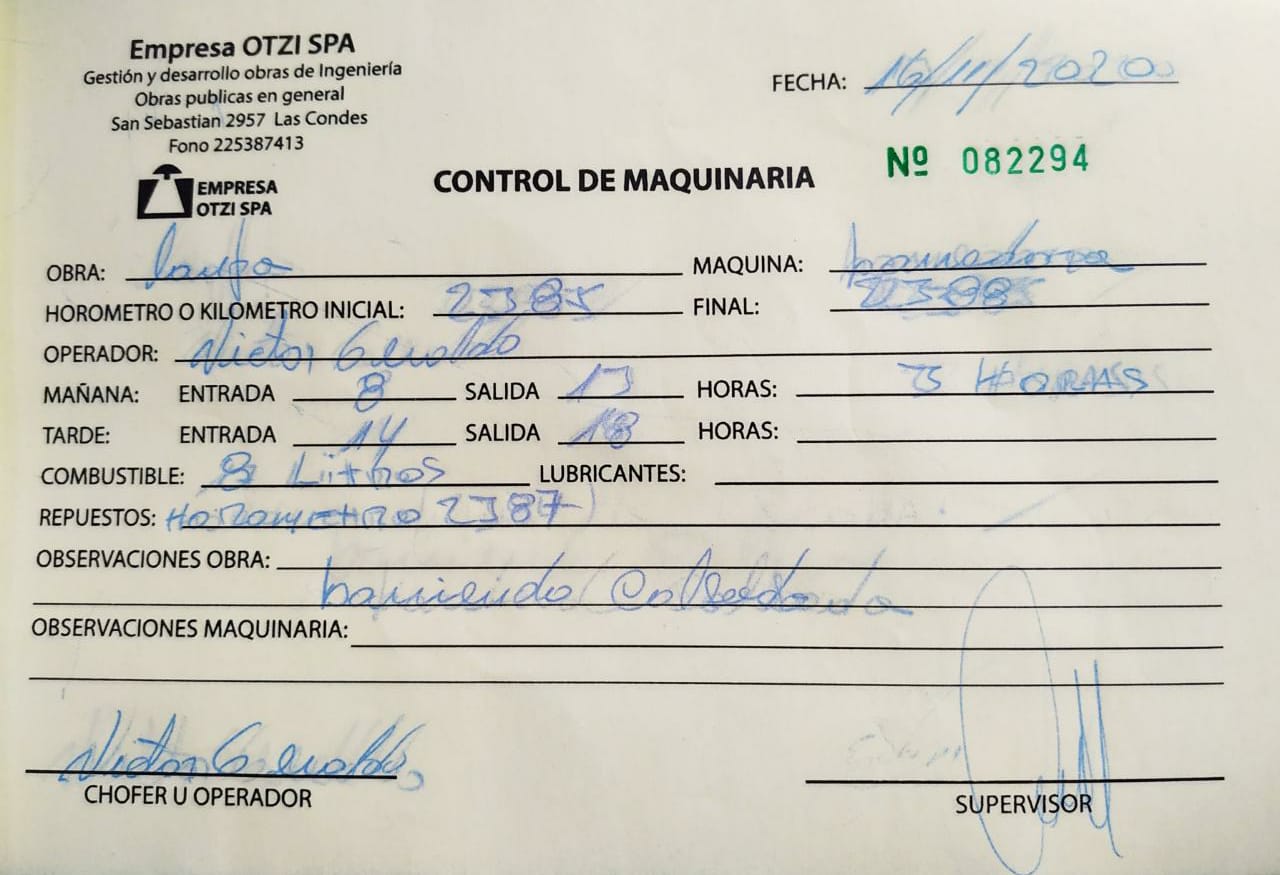 Empresa OTZI SPA
Gestión y desarrollo obras de Ingeniería
Obras publicas en general
San Sebastian 2957 Las Condes
Fono 225387413
EMPRESA
OTZI SPA
FECHA: 16/11/2020
Nº 082294
CONTROL DE MAQUINARIA
OBRA: MAQUINA: barredora
HOROMETRO O KILOMETRO INICIAL: 2385 FINAL: 2388
OPERADOR: Victor Geraldo
MAÑANA: ENTRADA 8 SALIDA 13 HORAS: 3 HORAS
TARDE: ENTRADA 14 SALIDA 18 HORAS:
COMBUSTIBLE: 8 Litros LUBRICANTES:
REPUESTOS: HOROMETRO 2387
OBSERVACIONES OBRA:
barriendo
OBSERVACIONES MAQUINARIA:
Victor Geraldo
CHOFER U OPERADOR
SUPERVISOR